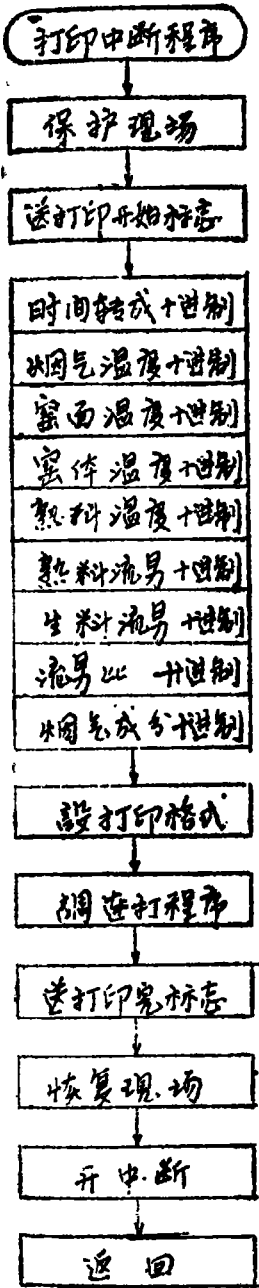 打印中断程序
保护现场
送打印开始标志
时间转成十进制
烟气温度十进制
窑面温度十进制
窑体温度十进制
熟料温度十进制
熟料流男十进制
生料流男十进制
流男比 十进制
烟气成分十进制
設打印格式
调连打程序
送打印完标志
恢复现场
开中断
返回